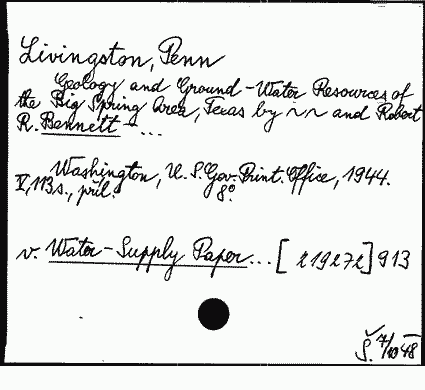 Livingston, Penn
Geology and Ground-Water Resources of
the Big Spring Area, Texas by ~~ and Robert
R. Bennett - ...
Washington, U. S. Gov. Print. Office, 1944.
V, 113 s., příl. 8°
v. Water-Supply Paper... [219272] 913
Š. 7/10 48